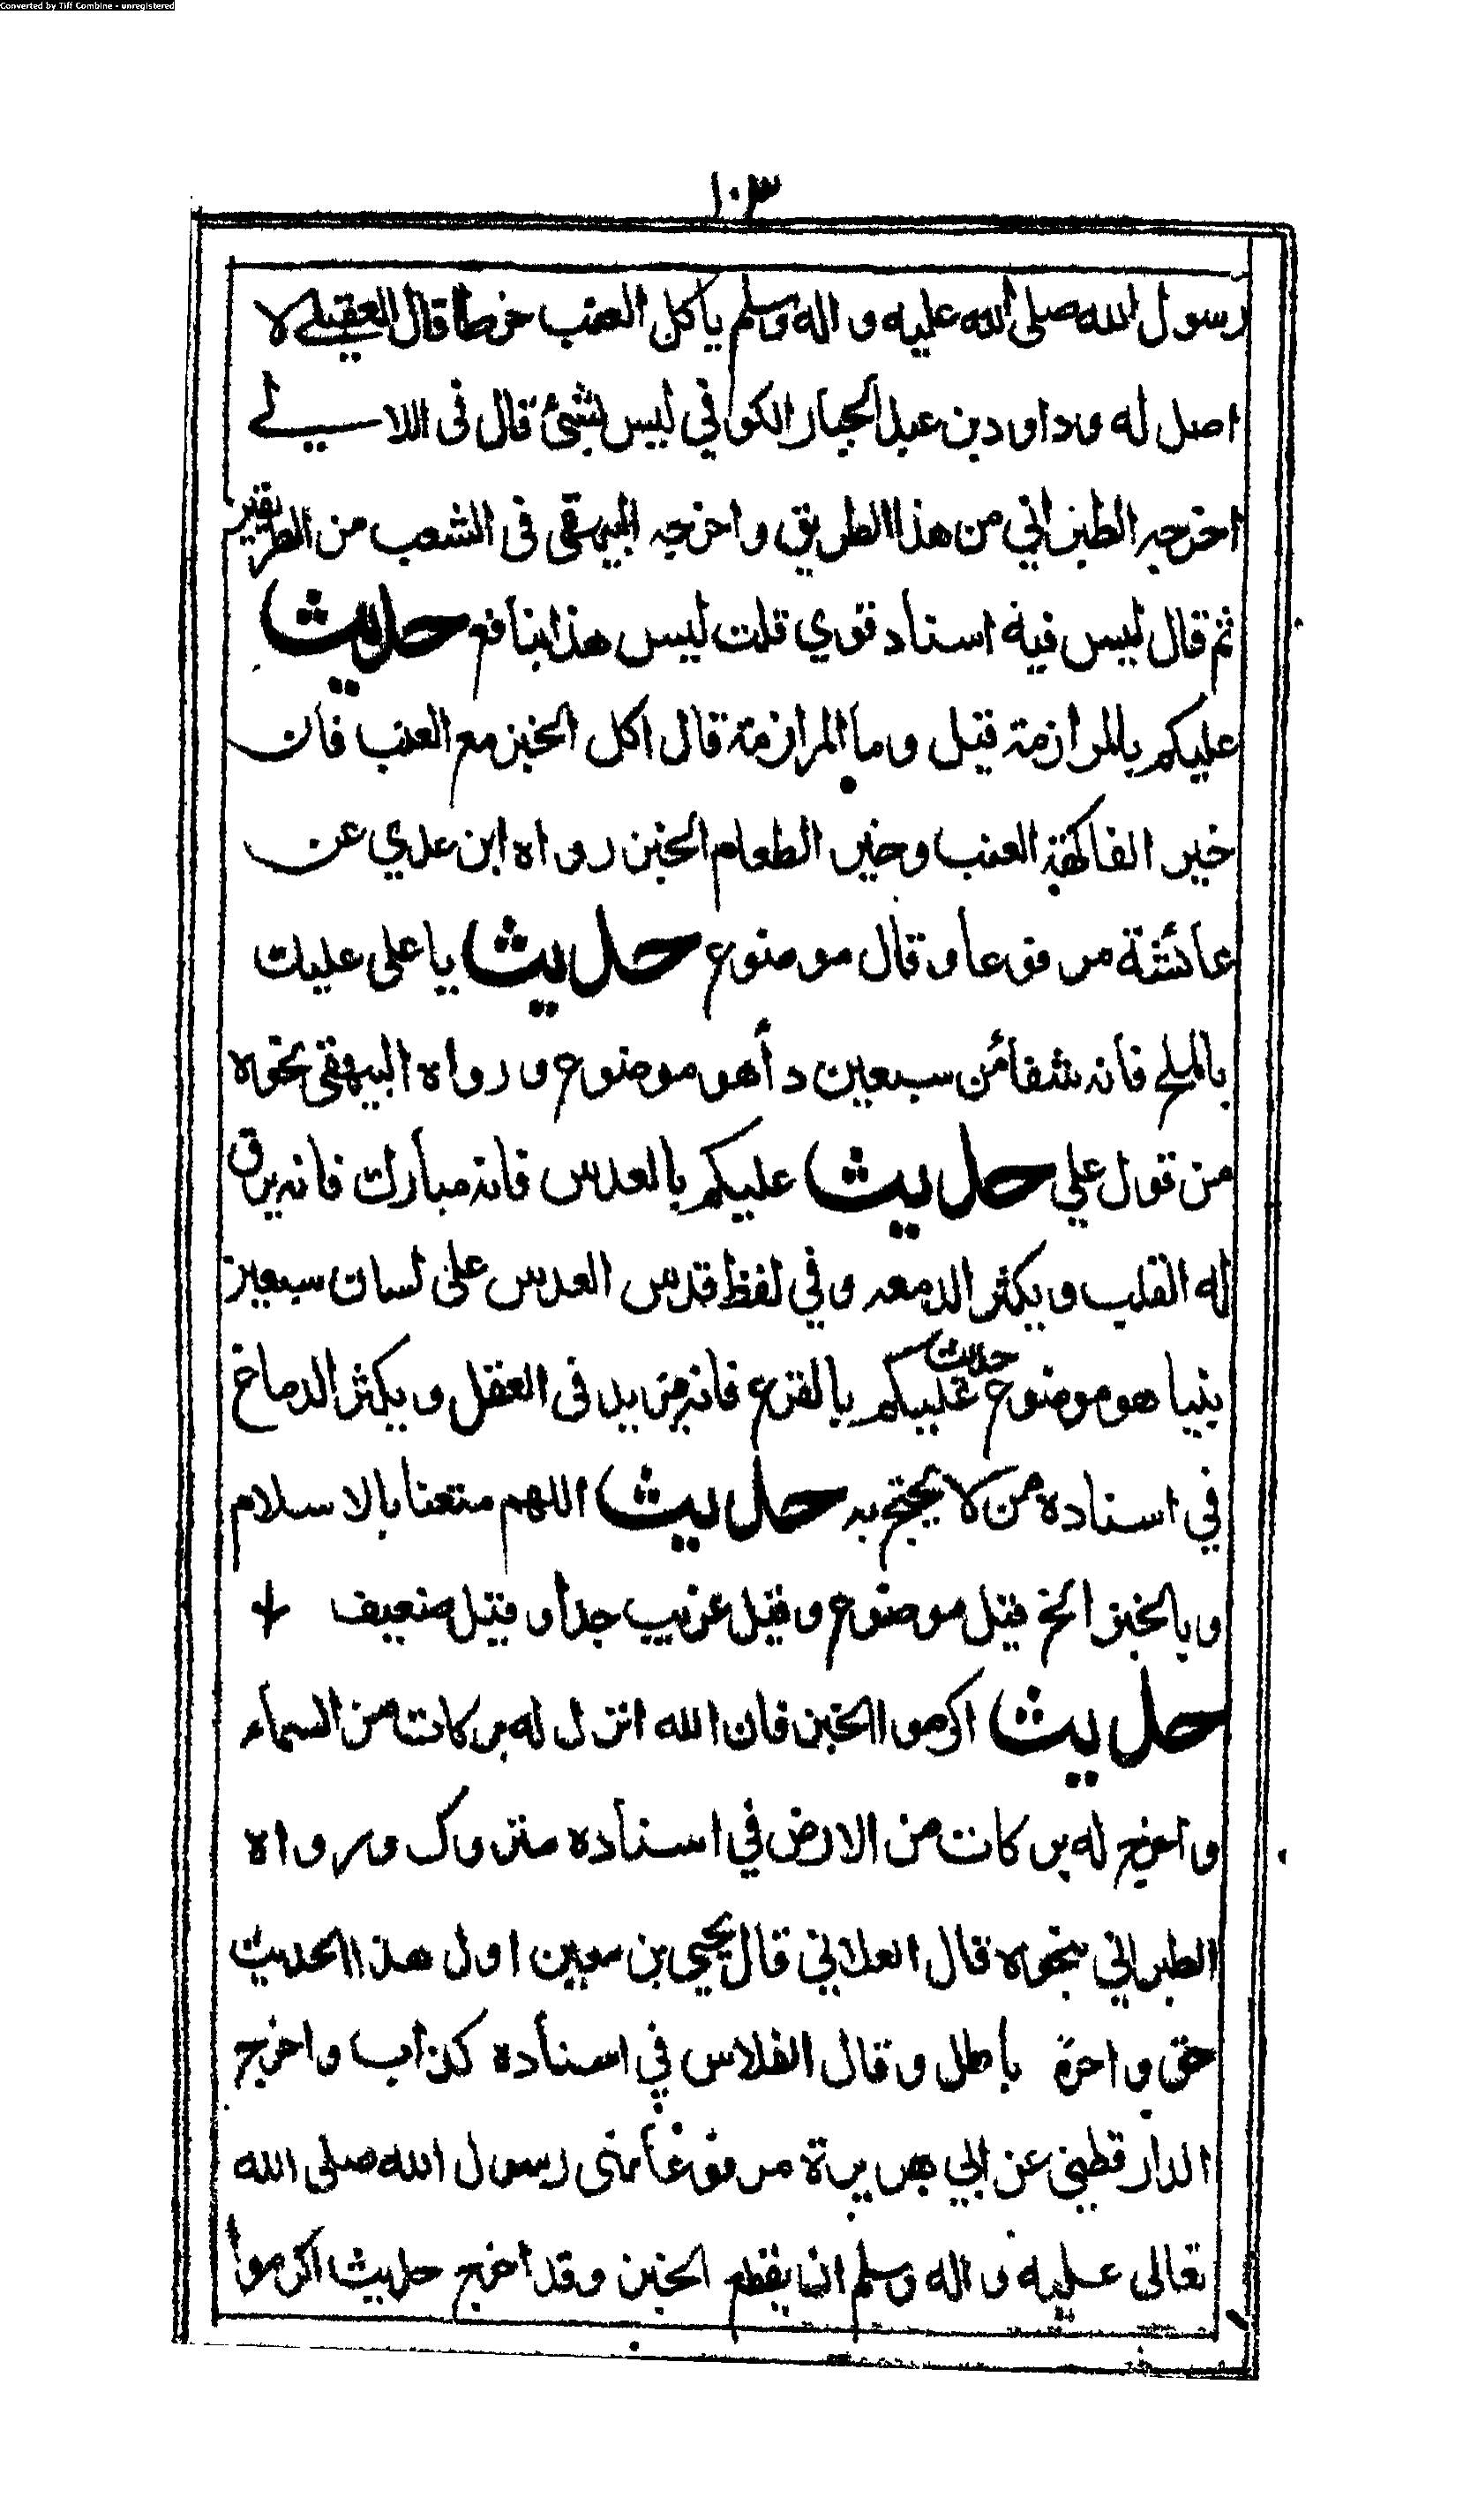 Converted by Tiff Combine - unregistered
١٠٣
رسول الله صلى الله عليه و اله وسلم يأكل العنب خرطا قال العقيلي لا
اصل له وداود بن عبد الجبار الكوفي ليس بشئ قال في اللا سيلے
اخرجه الطبراني من هذا الطريق واخرجه البيهقي في الشعب من الطريقين
ثم قال ليس فيه اسناد قوي قلت ليس هذا بنافع حديث
عليكم بالمرازمة قيل وما المرازمة قال اكل الخبز مع العنب فان
خير الفاكهة العنب وخير الطعام الخبز رواه ابن عدي عن
عائشة مرفوعا وقال موضوع حديث يا على عليك
بالملح فانه شفا من سبعين داء هو موضوع ورواه البيهقي نحوه
من قول علي حديث عليكم بالعدس فانه مبارك فانه يرق
له القلب ويكثر الدمعه وفي لفظ قدس العدس على لسان سبعين
نبيا هو موضوع حديث عليكم بالقرع فانه يزيد في العقل ويكثر الدماغ
في اسناده من لا يحتج به حديث اللهم متعنا بالاسلام
وبالخبز الخ قيل موضوع وقيل غريب جدا وقيل ضعيف
حديث اكرموا الخبز فان الله انزل له بركات من السماء
واخرج له بركات من الارض في اسناده متروك ورواه
الطبراني نحوه قال الغلابي قال يحيى بن معين اول هذا الحديث
حق واخره باطل وقال الفلاس في اسناده كذاب واخرج
الدارقطني عن ابي هريرة مرفوعا نهى رسول الله صلى الله
تعالى عليه و اله وسلم ان يقطع الخبز وقد اخرج حديث اكرموا